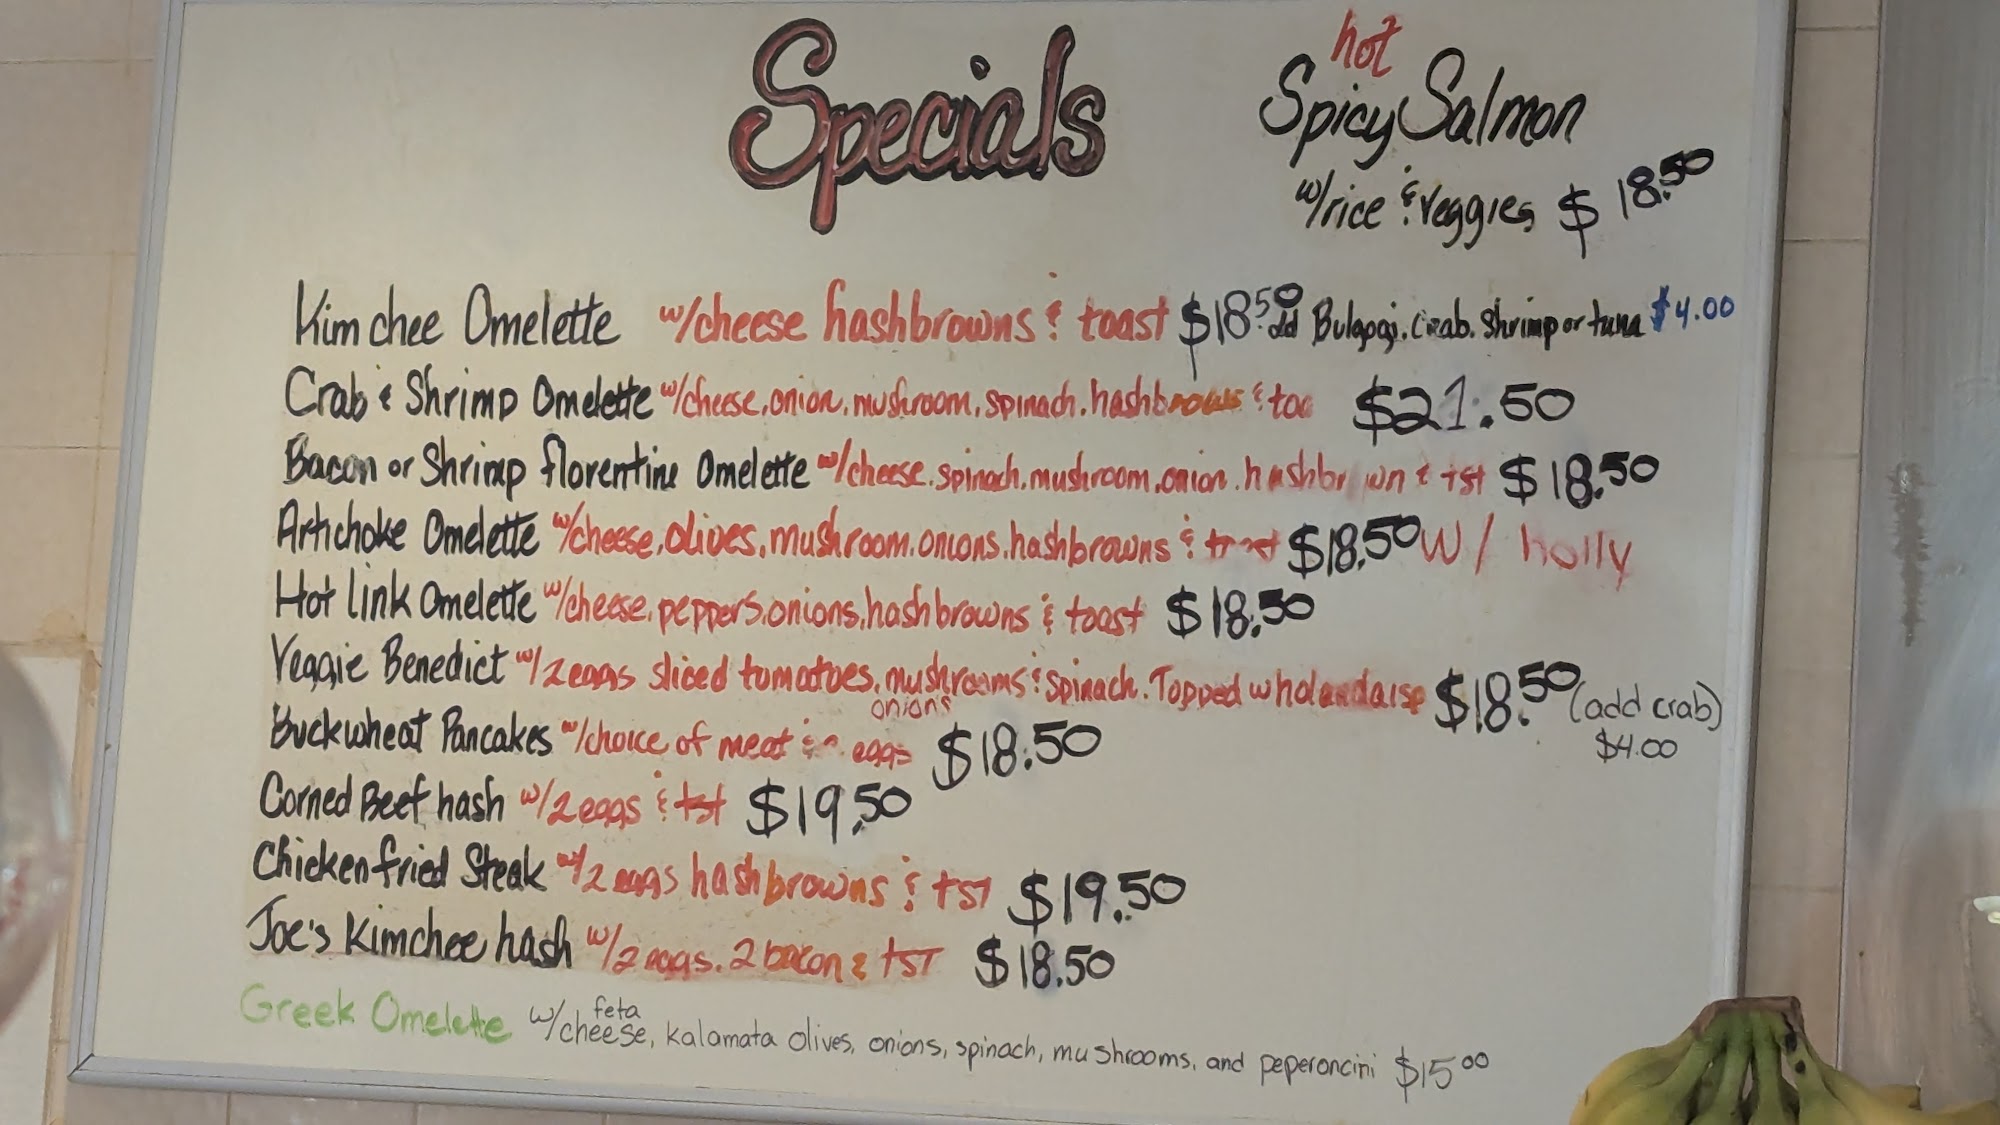 Specials
hot
Spicy Salmon
w/rice & veggies $18.50
Kimchee Omelette w/cheese hashbrowns & toast $18.50 add Bulgogi. Crab. Shrimp or tuna $4.00
Crab & Shrimp Omelette w/cheese, onion, mushroom, spinach. hashbrowns & toa $21.50
Bacon or Shrimp florentine Omelette w/cheese. spinach. mushroom. onion. hashbrown & tst $18.50
Artichoke Omelette w/cheese. olives. mushroom. onions. hashbrowns & toast $18.50 w/ holly
Hot link Omelette w/cheese. peppers. onions. hashbrowns & toast $18.50
Veggie Benedict w/2 eggs sliced tomatoes. mushrooms & spinach. Topped w holandaise $18.50 (add crab)
onions
$4.00
Buckwheat Pancakes w/choice of meat & eggs $18.50
Corned Beef hash w/2 eggs & tst $19.50
Chicken fried Steak w/2 eggs hashbrowns & tst $19.50
Joe's Kimchee hash w/2 eggs. 2 bacon & tst $18.50
feta
Greek Omelette w/cheese, kalamata olives, onions, spinach, mushrooms, and peperoncini $15.00